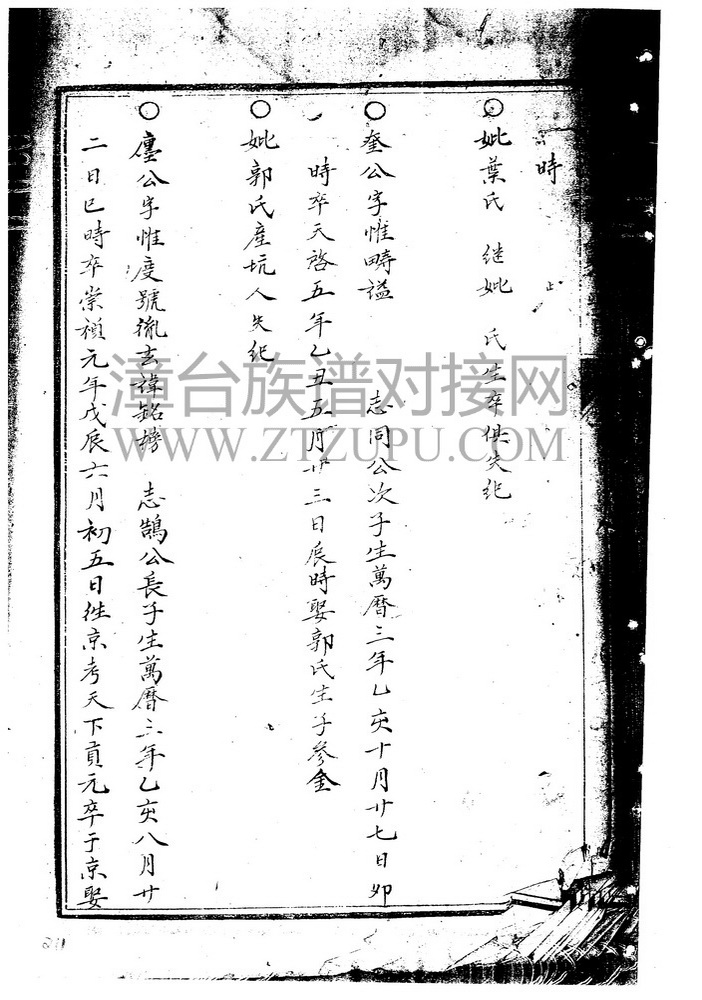 時
○妣葉氏 继妣 氏生卒俱失纪
○奎公字惟疇謚 志同公次子生萬曆三年乙亥十月廿七日卯
時卒天啓五年乙丑五月廿三日辰時娶郭氏生子參金
○妣郭氏產坑人失纪
○廛公字惟度號 玄諱銘 志鵠公長子生萬曆三年乙亥八月廿
二日巳時卒崇禎元年戊辰六月初五日徃京考天下貢元卒于京娶
漳台族谱对接网
WWW.ZTZUPU.COM